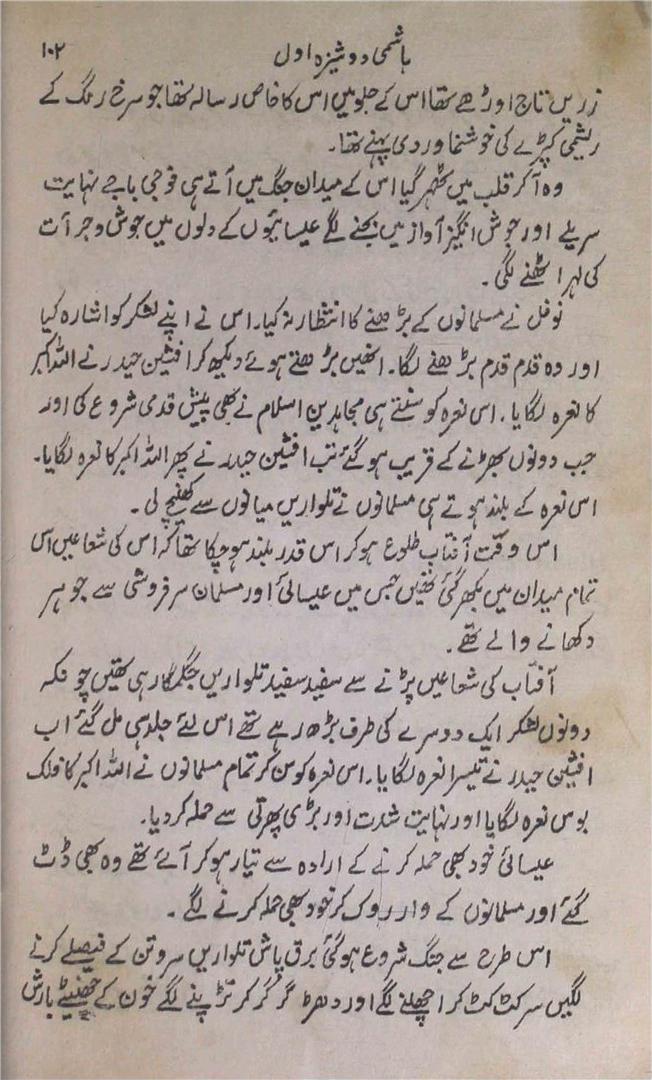 ہاشمی دوشیزہ اول ۱۰۲
زریں تاج اوڑھے تھا اس کے جلو میں اس کا خاص رسالہ تھا جو سرخ رنگ کے
ریشمی کپڑے کی خوشنما وردی پہنے تھا۔
وہ آکر قلب میں ٹھہر گیا اس کے میدان جنگ میں آتے ہی فوجی باجے نہایت
سریلے اور جوش انگیز آواز میں بجنے لگے عیسائیوں کے دلوں میں جوش و جرأت
کی لہر اٹھنے لگی۔
نوفل نے مسلمانوں کے بڑھنے کا انتظار نہ کیا۔ اس نے اپنے لشکر کو اشارہ کیا
اور وہ قدم قدم بڑھنے لگا۔ انھیں بڑھتے ہوئے دیکھ کر افشین حیدر نے اللہ اکبر
کا نعرہ لگایا۔ اس نعرہ کو سنتے ہی مجاہدین اسلام نے بھی پیش قدمی شروع کی اور
جب دونوں بھڑنے کے قریب ہوگئے تب افشین حیدر نے پھر اللہ اکبر کا نعرہ لگایا۔
اس نعرہ کے بلند ہوتے ہی مسلمانوں نے تلواریں میانوں سے کھینچ لی۔
اس وقت آفتاب طلوع ہوکر اس قدر بلند ہوچکا تھا کہ اس کی شعاعیں اس
تمام میدان میں بکھر گئی تھیں جس میں عیسائی اور مسلمان سرفروشی سے جوہر
دکھانے والے تھے۔
آفتاب کی شعاعیں پڑنے سے سفید سفید تلواریں جگمگا رہی تھیں چونکہ
دونوں لشکر ایک دوسرے کی طرف بڑھ رہے تھے اس لئے جلد ہی مل گئے اب
افشین حیدر نے تیسرا نعرہ لگایا۔ اس نعرہ کو سن کر تمام مسلمانوں نے اللہ اکبر کا فلک
بوس نعرہ لگایا اور نہایت شدت اور بڑی پھرتی سے حملہ کردیا۔
عیسائی خود بھی حملہ کرنے کے ارادہ سے تیار ہوکر آئے تھے وہ بھی ڈٹ
گئے اور مسلمانوں کے وار روک کر خود بھی حملہ کرنے لگے۔
اس طرح سے جنگ شروع ہوگئی برق پاش تلواریں سروتن کے فیصلے کرنے
لگیں سر کٹ کٹ کر اچھلنے لگے اور دھڑ گر گر کر تڑپنے لگے خون کے چھینٹے بارش